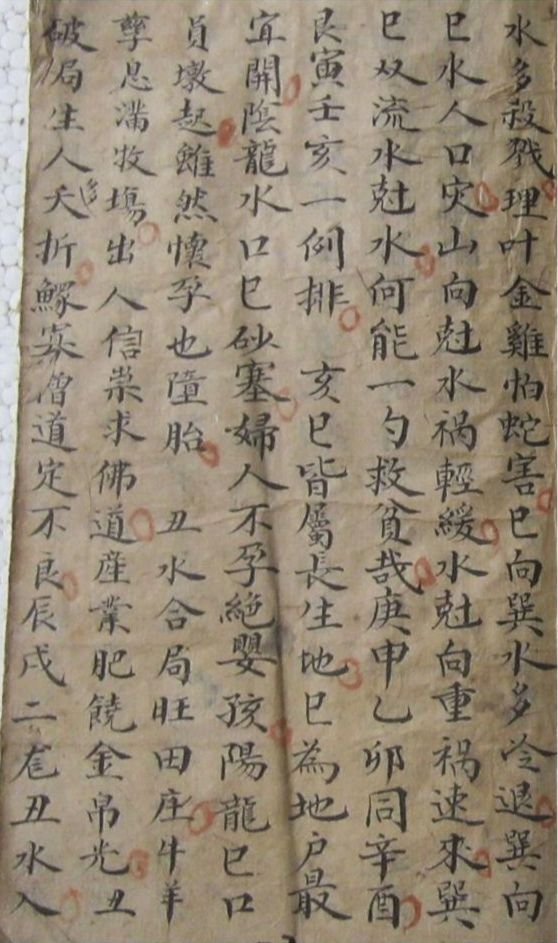 水多殺戮理叶金雞怕蛇害巳向巽水多冷退巽向
巳水人口灾山向尅水禍輕緩水尅向重禍速來巽
巳双流水尅水何能一勺救貧哉庚申乙卯同辛酉
艮寅壬亥一例排 亥巳皆屬長生地巳為地户最
宜開陰龍水口巳砂塞婦人不孕絕嬰孩陽龍巳口
員墩起雖然懷孕也墮胎 丑水合局旺田庄牛羊
孳息滿牧塲出人信崇求佛道産業肥饒金帛光丑
破局生人多夭折鰥寡僧道定不良辰戌二
丑水入